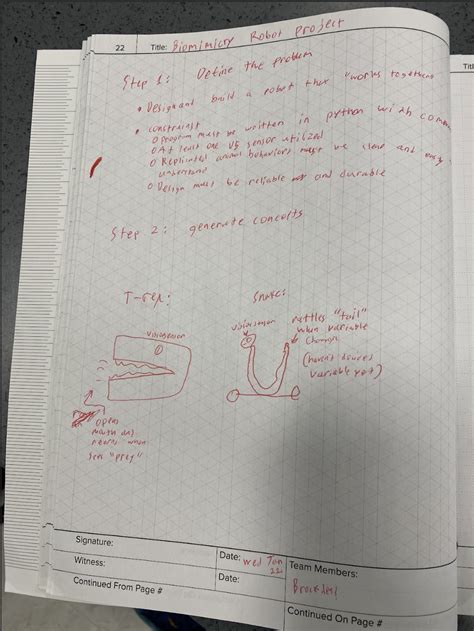 22 Title: Biomimicry Robot Project
Step 1: Define the problem
• Design and build a robot that "works together
• constraints
O program must be written in python with comm
O At least one V5 sensor utilized
O Replicated animal behaviors must be clear and easy
understand
O Design must be reliable and durable
Step 2: generate concepts
T-rex:
Snake:
vision sensor
vision sensor
rattles "tail"
when variable
changes
(havent
variable yet)
opens
mouth and
when
sees "prey"
Signature:
Witness:
Continued From Page #
Date: wed Jan
22
Date:
Team Members:
Continued On Page #